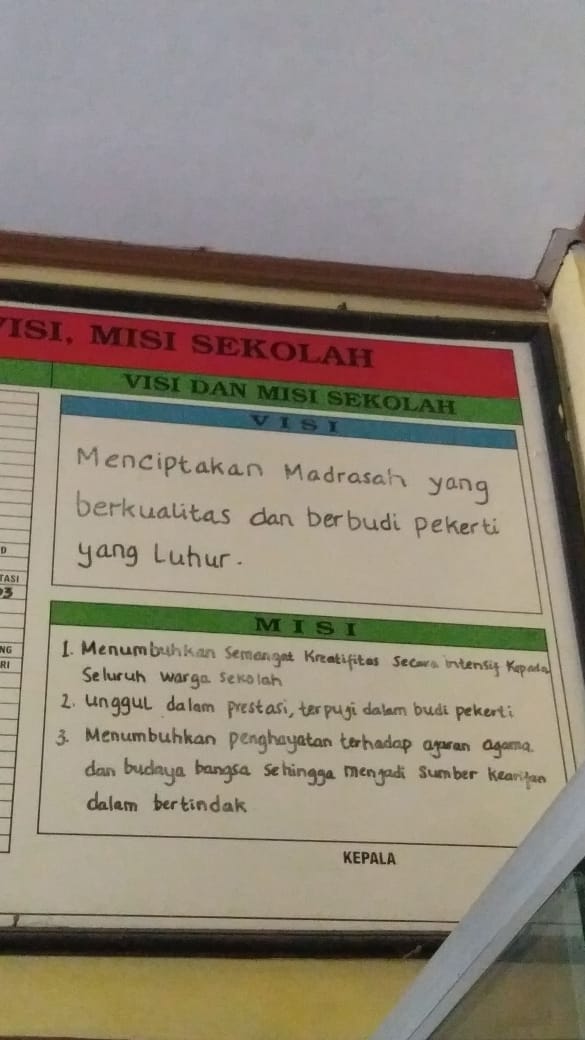 VISI, MISI SEKOLAH
VISI DAN MISI SEKOLAH
VISI
Menciptakan Madrasah yang
berkualitas dan berbudi pekerti
yang Luhur.
D
TASI
93
NG
RI
MISI
1. Menumbuhkan Semangat Kreatifitas Secara intensif Kepada
Seluruh warga Sekolah
2. Unggul dalam prestasi, terpuji dalam budi pekerti
3. Menumbuhkan penghayatan terhadap ajaran agama
dan budaya bangsa sehingga menjadi sumber kearifan
dalam bertindak
KEPALA